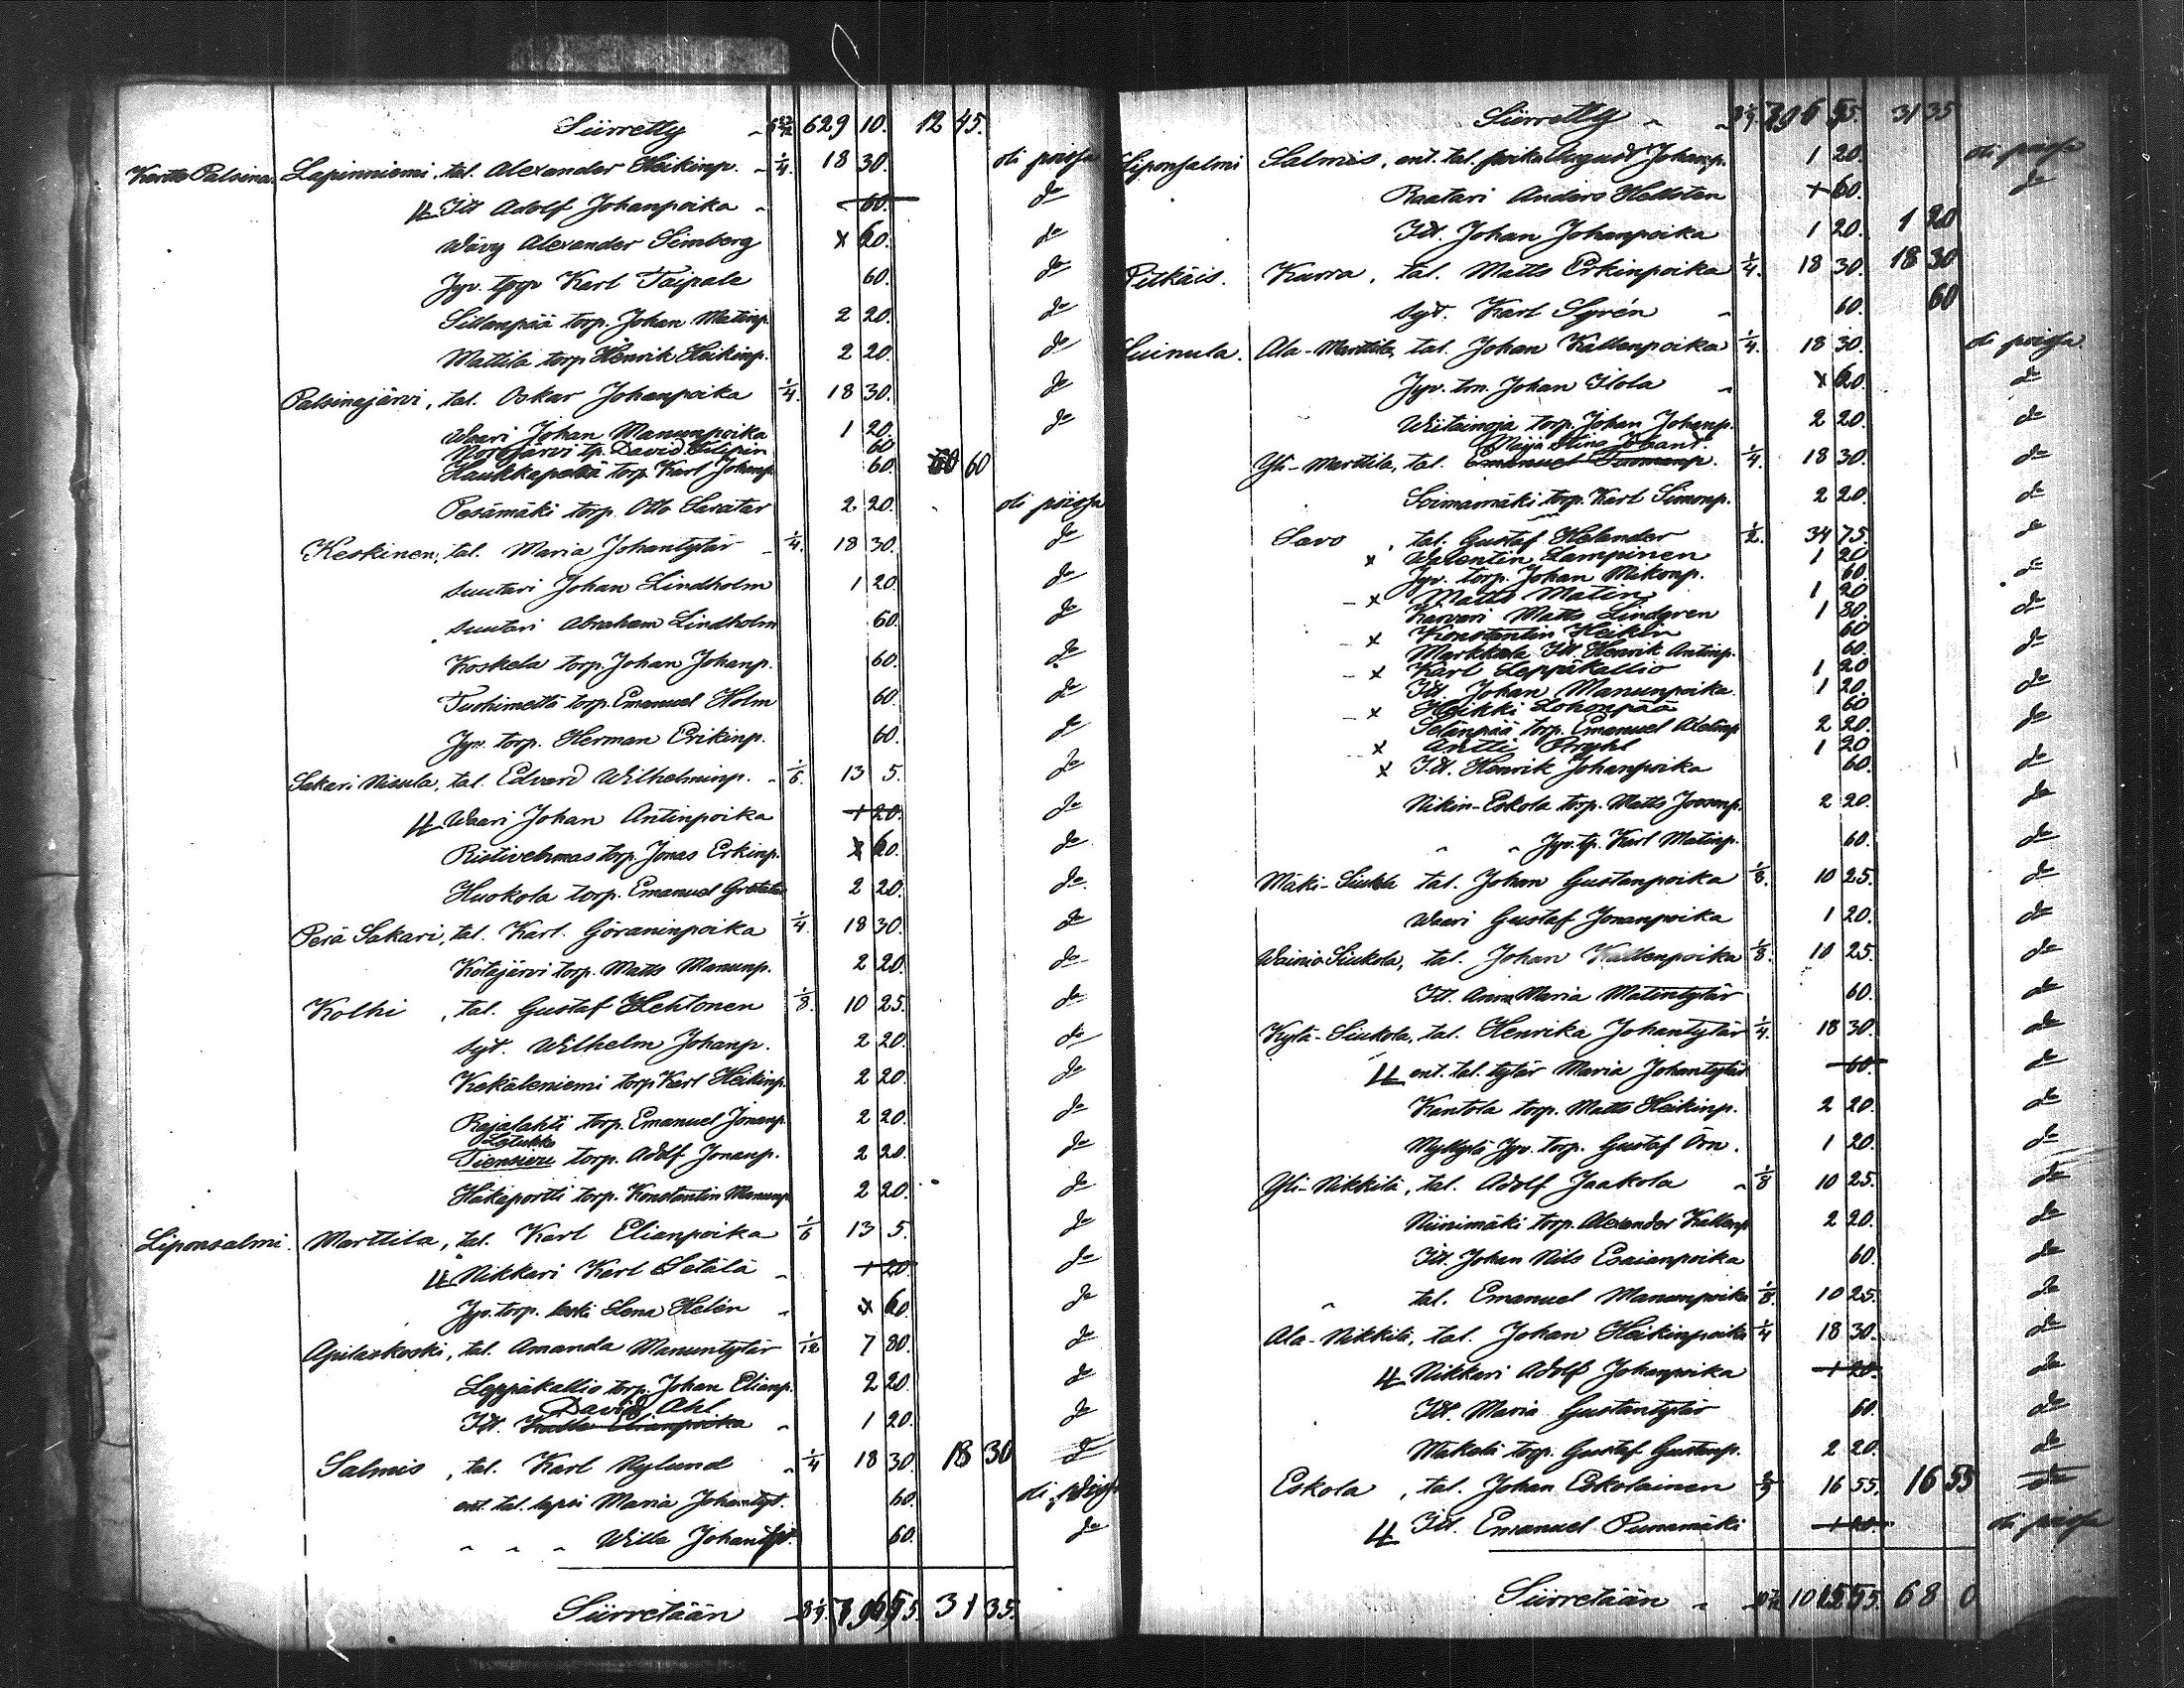 Siirretty 629 10. 12 45.
Lapinniemi, tal. Alexander Heikinp. 1/4. 18 30. oli poissa
Itt Adolf Johanpoika 60. do
Wävy Alexander Limberg × 60. do
Jyv. Karl Taipale 60. do
Sillanpää torp. Johan Matinp. 2 20. do
Mattila torp. Henrik Heikinp. 2 20. do
Palsinajärvi, tal. Oskar Johanpoika 1/4. 18 30. do
Waari Johan Manunpoika 1 20. do
tp. David Filipin 60
torp. Karl Johanp. 60. 60
Pesämäki torp. Otto 2 20. oli poissa
Keskinen, tal. Maria Johantytär 1/4. 18 30. do
suutari Johan Lindholm 1 20. do
suutari Abraham Lindholm 60. do
Koskela torp. Johan Johanp. 60. do
torp. Emanuel Holm 60. do
Jyv. torp. Herman Erikinp. 60. do
Sakari Nissula, tal. Edvard Wilhelminp. 1/6. 13 5. do
Waari Johan Antinpoika 1 20. do
torp. Jonas Erkinp. 60. do
Huokola torp. Emanuel 2 20. do
Perä Sakari, tal. Karl Göraninpoika 1/4. 18 30. do
Kotajärvi torp. Matts Manunp. 2 20. do
Kolhi, tal. Gustaf Lehtonen 1/8. 10 25. do
syt. Wilhelm Johanp. 2 20. do
Kekäleniemi torp. Karl Heikinp. 2 20. do
Rajalahti torp. Emanuel Jonanp. 2 20. do
torp. Adolf Jonanp. 2 20. do
Häkäportti torp. Konstantin Manunp. 2 20. do
Liponsalmi. Marttila, tal. Karl Elianpoika 1/6 13 5. do
Nikkari Karl Setälä 1 20. do
Jyv. torp. leski Lena Helén × 60. do
Apilaskoski, tal. Amanda Manuntytär 1/12 7 80. do
Leppäkallio torp. Johan Elianp. 2 20. do
David Ahl
Itt. Kalle Elianpoika 1 20. do
Salmis, tal. Karl Nylund 1/4 18 30. 18 30 do
ent. tal. lapsi Maria Johantyt. 60. oli poissa
" " " Willa Johantyt. 60. do
Siirretään 31 35.
Siirretty 31 35
Liponsalmi Salmis, ent. tal. poika August Johanp. 1 20. oli poissa
Raatari Anders Hellsten 60. do
Itt. Johan Johanpoika 1 20. 1 20
Pitkäis. Karra, tal. Matts Erkinpoika 1/4. 18 30. 18 30
syt. Karl Syrén 60. 60
Suinula. Ala-Marttila, tal. Johan Kallenpoika 1/4. 18 30. oli poissa
Jyv. tm. Johan Ilola × 60. do
Wiitainoja torp. Johan Johanp. 2 20. do
Maija Stina Johant.
Yli-Marttila, tal. Emanuel Tuomanp. 1/4. 18 30. do
torp. Karl Simonp. 2 20. do
Savo, tal. Gustaf Helander 1/2. 34 75. do
× Walentin Lampinen 1 20
Jyv. torp. Johan Mikonp. 60. do
× Matts Matin 1 20
Karvari Matts Lindgren 1 80. do
× Konstantin Heikin 60
Markkola Itt. Henrik Antinp. 60. do
× Karl Leppäkallio 1 20
Itt. Johan Manunpoika 1 20. do
× Heikki Lohonpää 60
Selänpää torp. Emanuel 2 20. do
× Antti 1 20
× Itt. Henrik Johanpoika 60. do
Nikin-Eskola torp. Matts Joosenp. 2 20. do
" " Jyv. tp. Karl Matinp. 60. do
Mäki-Siukola tal. Johan Gustanpoika 1/8. 10 25. do
Waari Gustaf Jonanpoika 1 20. do
Wainio-Siukola, tal. Johan Kallenpoika 1/8. 10 25. do
Itt. Anna Maria Matintytär 60. do
Kylä-Siukola, tal. Henrika Johantytär 1/4. 18 30. do
ent. tal. tytär Maria Johantytär 60. do
Kantola torp. Matts Heikinp. 2 20. do
Myllylä Jyv. torp. Gustaf Örn. 1 20. do
Yli-Nikkilä, tal. Adolf Jaakola 1/8 10 25. do
Niinimäki torp. Alexander Kallenp. 2 20. do
Itt. Johan Nils Esaianpoika 60. do
" tal. Emanuel Manunpoika 1/8. 10 25. do
Ala-Nikkilä, tal. Johan Heikinpoika 1/4 18 30. do
Nikkari Adolf Johanpoika 1 20. do
Itt. Maria Gustantytär 60. do
Mäkelä torp. Gustaf Gustanp. 2 20. do
Eskola, tal. Johan Eskolainen 16 55. 16 55 do
Itt. Emanuel Punamäki 1 20. oli poissa
Siirretään 68 0